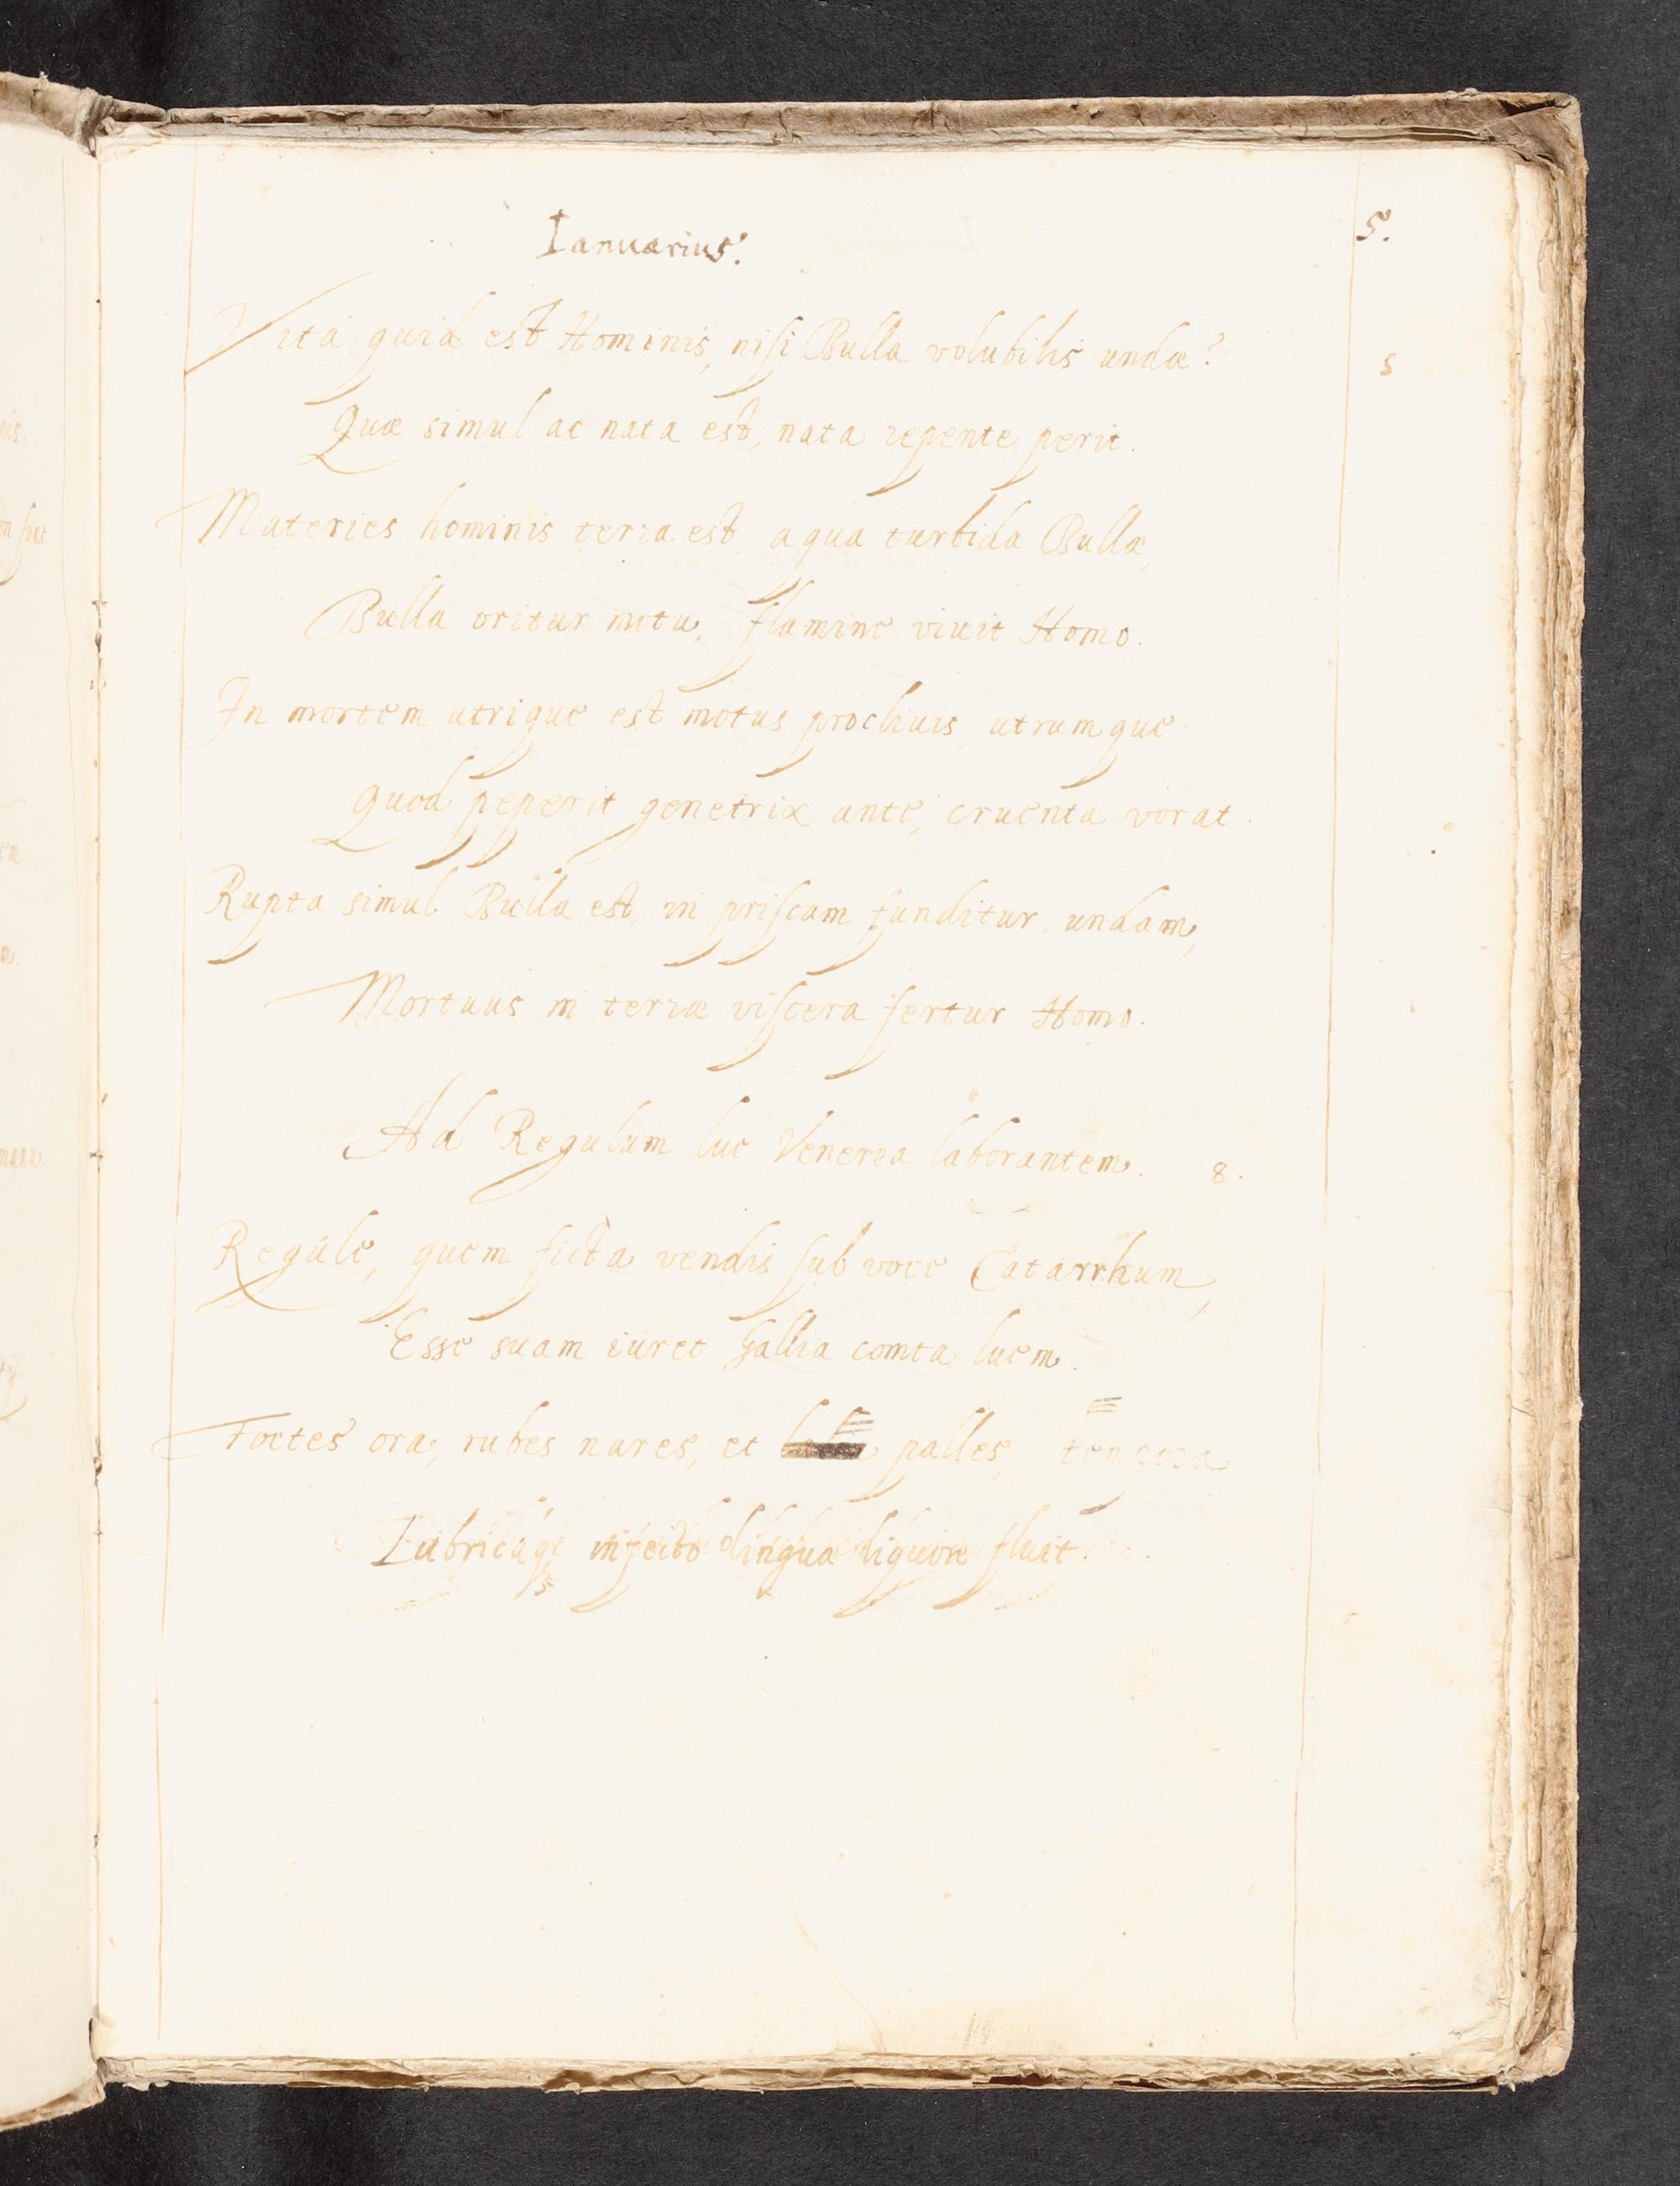 Ianuarius. 5.
Vita quid est Hominis, nisi Bulla volubilis undæ? 5
Quæ simul ac nata est, nata repente perit.
Materies hominis terra est, aqua turbida Bullæ,
Bulla oritur motu, flamine viuit Homo.
In mortem utrique est motus procliuis, utrumque
Quod peperit genetrix ante, cruenta vorat.
Rupta simul Bulla est, in priscam funditur undam,
Mortuus in terræ viscera fertur Homo.
Ad Regulum lue Venerea laborantem. 8.
Regule, quem ficta vendis sub voce Catarrhum,
Esse suam iuret Gallia comta luem.
Foetes ora, rubes nares, et palles, tempora
Lubricáq; infecto lingua liquore fluit